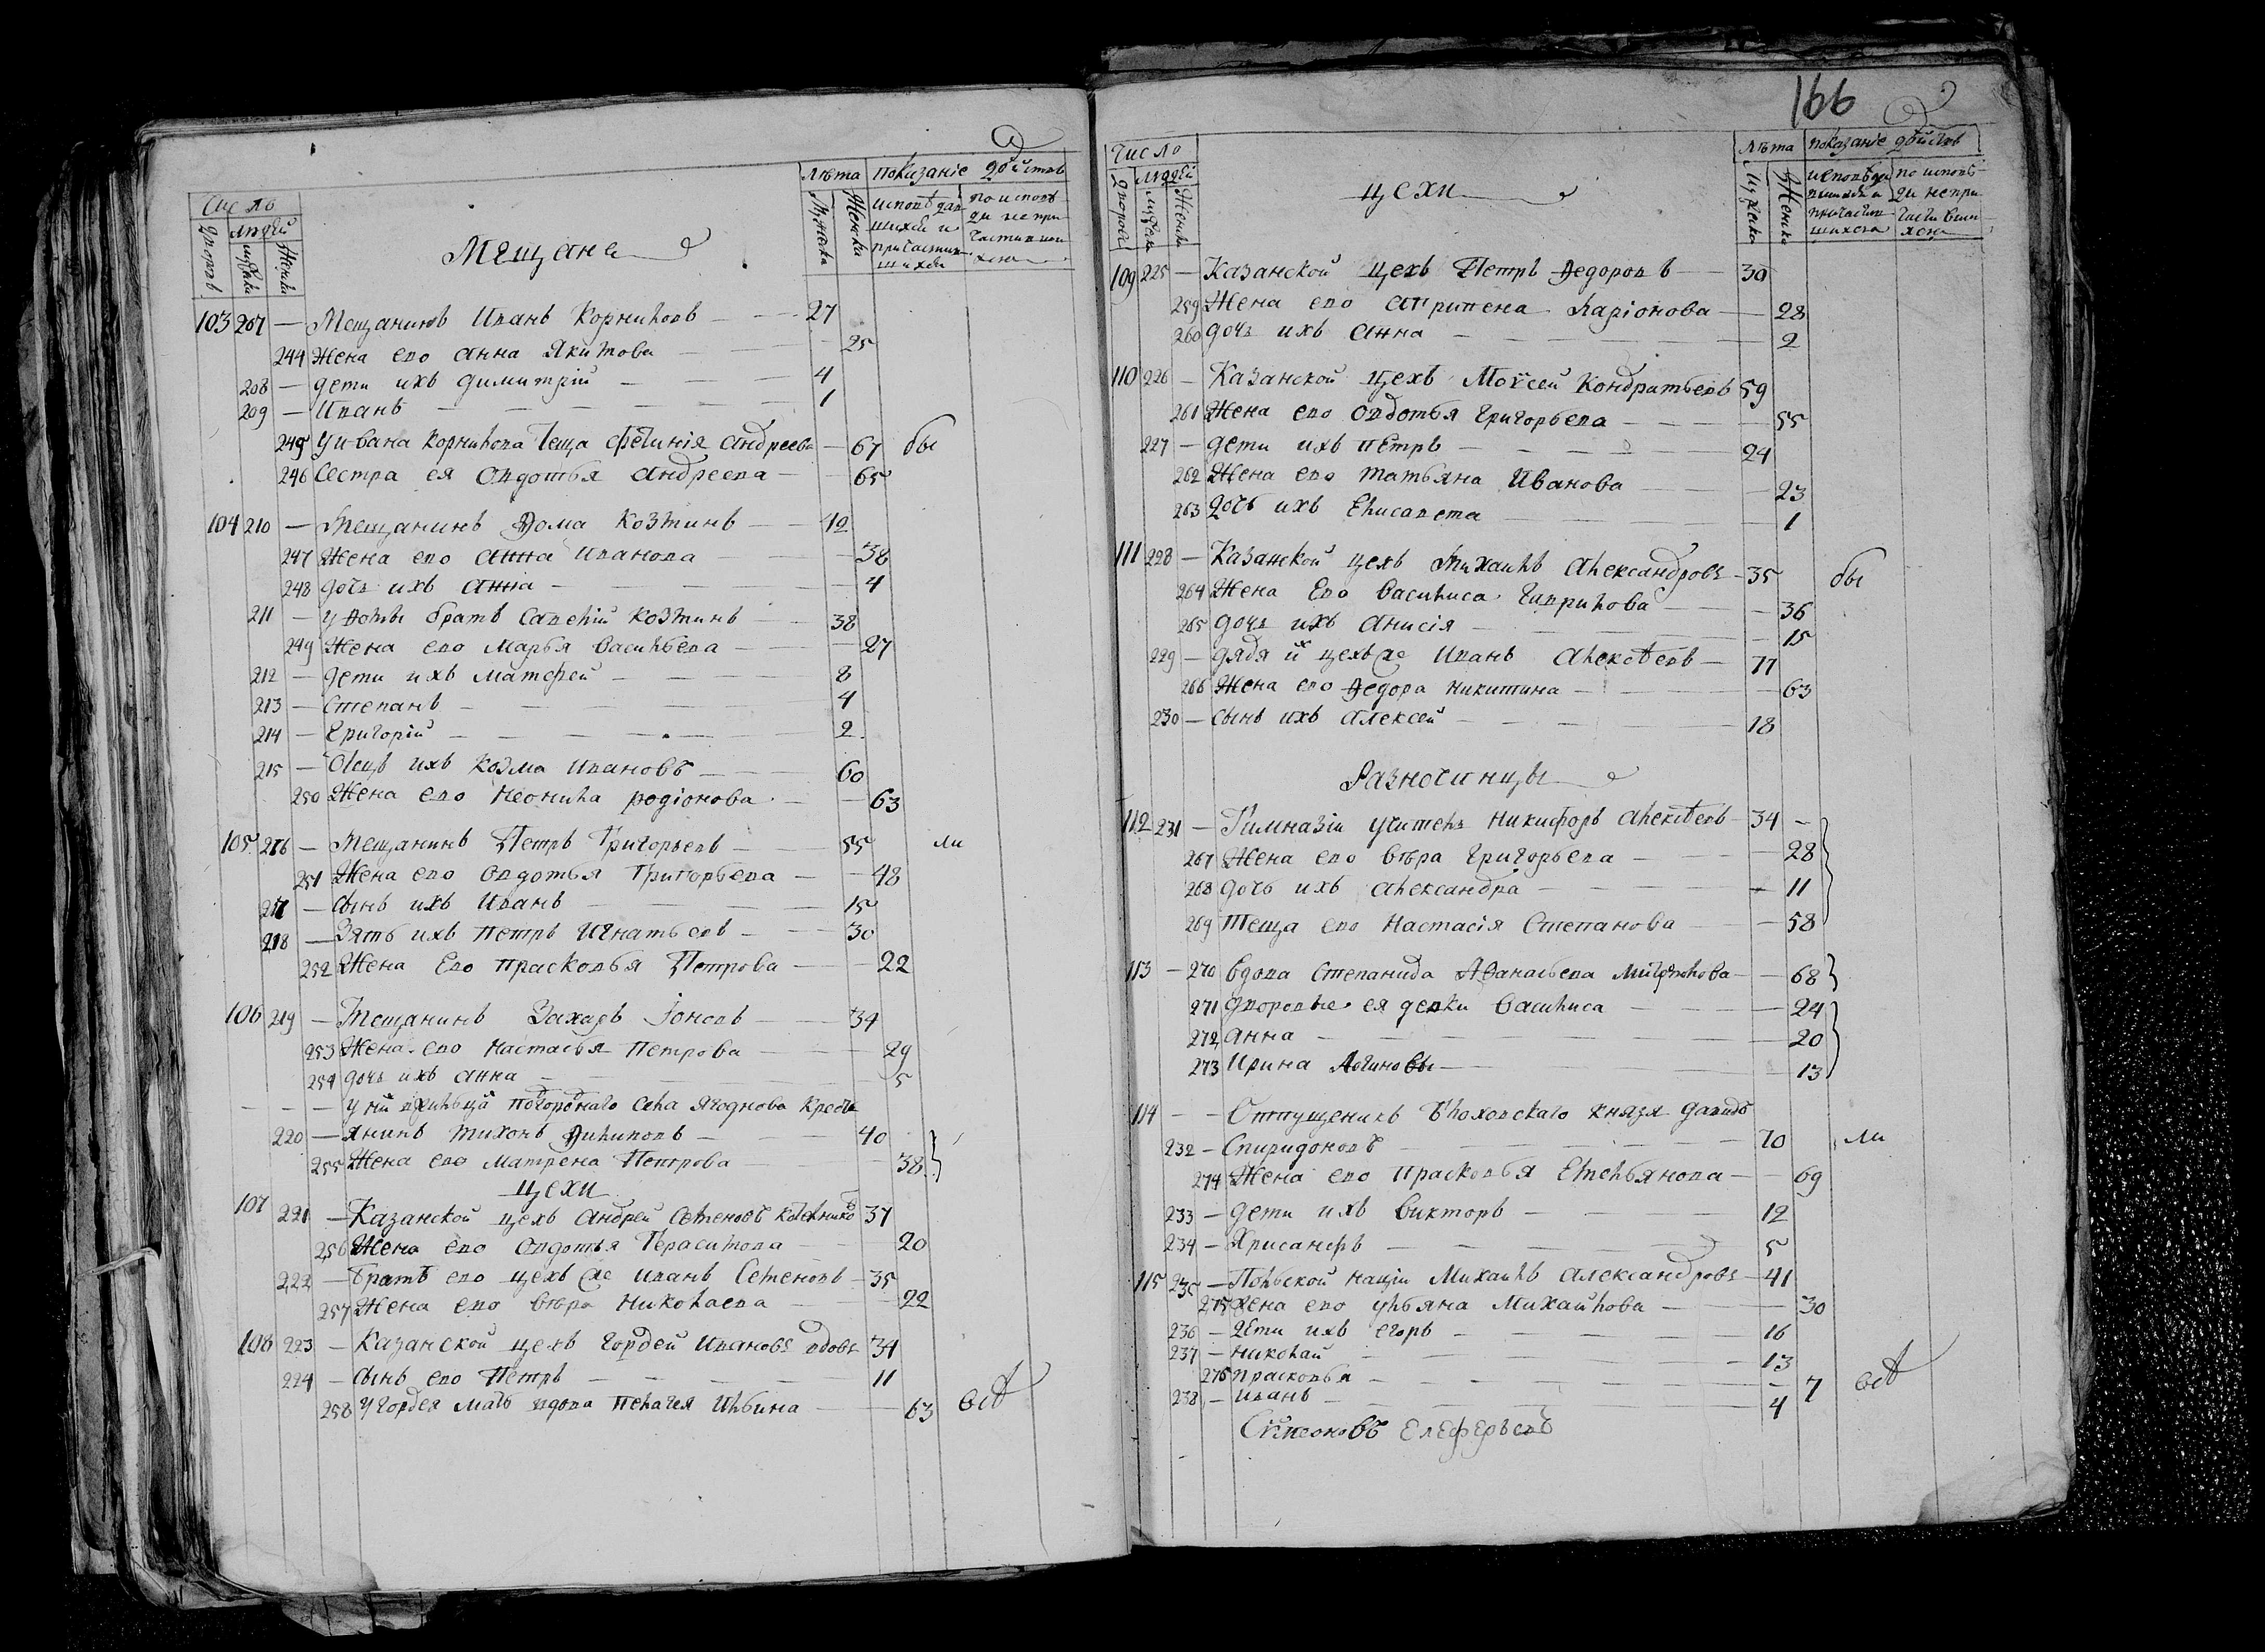 Число
Лѣта показаніе дѣйств
дворовъ людей
мужска женска
Мужска Женска исповѣдав по исповѣ
шихся и ди не при
причастив частивши
шихся хся
Мещане
103 207 — Мещанинъ Иванъ Корниловъ — 27
244 Жена его Анна Якимова — 25
208 — дети ихъ Димитрій — 4
209 — Иванъ — 1
245 У ивана Корнилова теща фетинія Андреева — 67 бы
246 Сестра ея Овдотья Андреева — 65
104 210 — Мещанинъ Ѳома Козминъ — 42
247 Жена его Анна Иванова — 38
248 дочь ихъ Анна — 4
211 — У Ѳомы братъ Савелій Козминъ — 38
249 Жена его Марья Васильева — 27
212 — дети ихъ Матфей — 8
213 — Степанъ — 4
214 — Григорій — 2
215 — Отецъ ихъ Козма Ивановъ — 60
250 Жена его Неонила родіонова — 63
105 216 — Мещанинъ Петръ Григорьевъ — 55 ли
251 Жена его Овдотья Григорьева — 48
217 — Сынъ ихъ Иванъ — 15
218 — Зять ихъ Петръ Игнатьевъ — 30
252 Жена Его Прасковья Петрова — 22
106 219 — Мещанинъ Захаръ Іоновъ — 34
253 Жена его Настасья Петрова — 29
254 дочь ихъ Анна — 5
— — — У ни села Ягоднова Кресть
220 — янинъ Тихонъ Ѳилиповъ — 40
255 Жена его Матрена Петрова — 38
Цехи
107 221 — Казанской цехъ Андрей Семеновъ 37
256 Жена его Овдотья Герасимова — 20
222 — Братъ его цехъ же Иванъ Семеновъ — 35
257 Жена его Вѣра Николаева — 22
108 223 — Казанской цехъ Гордей Ивановъ вдовъ 34
224 — Сынъ его Петръ — 11
258 У Гордея Мать вдова Пелагея Ильина — 63
166
Число
Лѣта показаніе дѣйств
дворовъ людей
мужска женска
Мужска Женска исповѣдав по исповѣ
шихся и ди не при
причастив частивши
шихся хся
Цехи
109 225 — Казанской цехъ Петръ Ѳедоровъ — 30
259 Жена его Агрипена Ларіонова — 28
260 дочь ихъ Анна — 2
110 226 — Казанской цехъ Моѵсей Кондратьевъ 59
261 Жена его Овдотья Григорьева — 55
227 — дети ихъ Петръ — 24
262 Жена его Татьяна Иванова — 23
263 дочь ихъ Елисавета — 1
111 228 — Казанской цехъ Михаилъ Александровъ — 35 бы
264 Жена Его Василиса Гаврилова — 36
265 дочь ихъ Анисія — 15
229 — дядя их цехъ же Иванъ Алексѣевъ — 77
266 Жена его Ѳедора Никитина — 63
230 — Сынъ ихъ Алексей — 18
Разночинцы
112 231 — Гимназіи учитель Никифоръ Алексѣевъ — 34 —
267 Жена его Вѣра Григорьева — 28
268 дочь ихъ Александра — 11
269 Теща его Настасія Степанова — 58
113 — 270 Вдова Степанида Аѳанасьева — 68
271 дворовые ея девки Василиса — 24
272 Анна — 20
273 Ирина Логиновы — 13
114 — — Отпущеникъ князя Давидъ
232 — Спиридоновъ — 70 ли
274 Жена его Прасковья Емельянова — 69
233 — дети ихъ Викторъ — 12
234 — Хрисанфъ — 5
115 235 — Польской націи Михаилъ Александровъ — 41
275 Жена его Ульяна Михайлова — 30
236 — Дети ихъ Егоръ — 16
237 — Николай — 13
276 Прасковья — 7
238 — Иванъ — 4
Симеоновъ Елеферъевъ